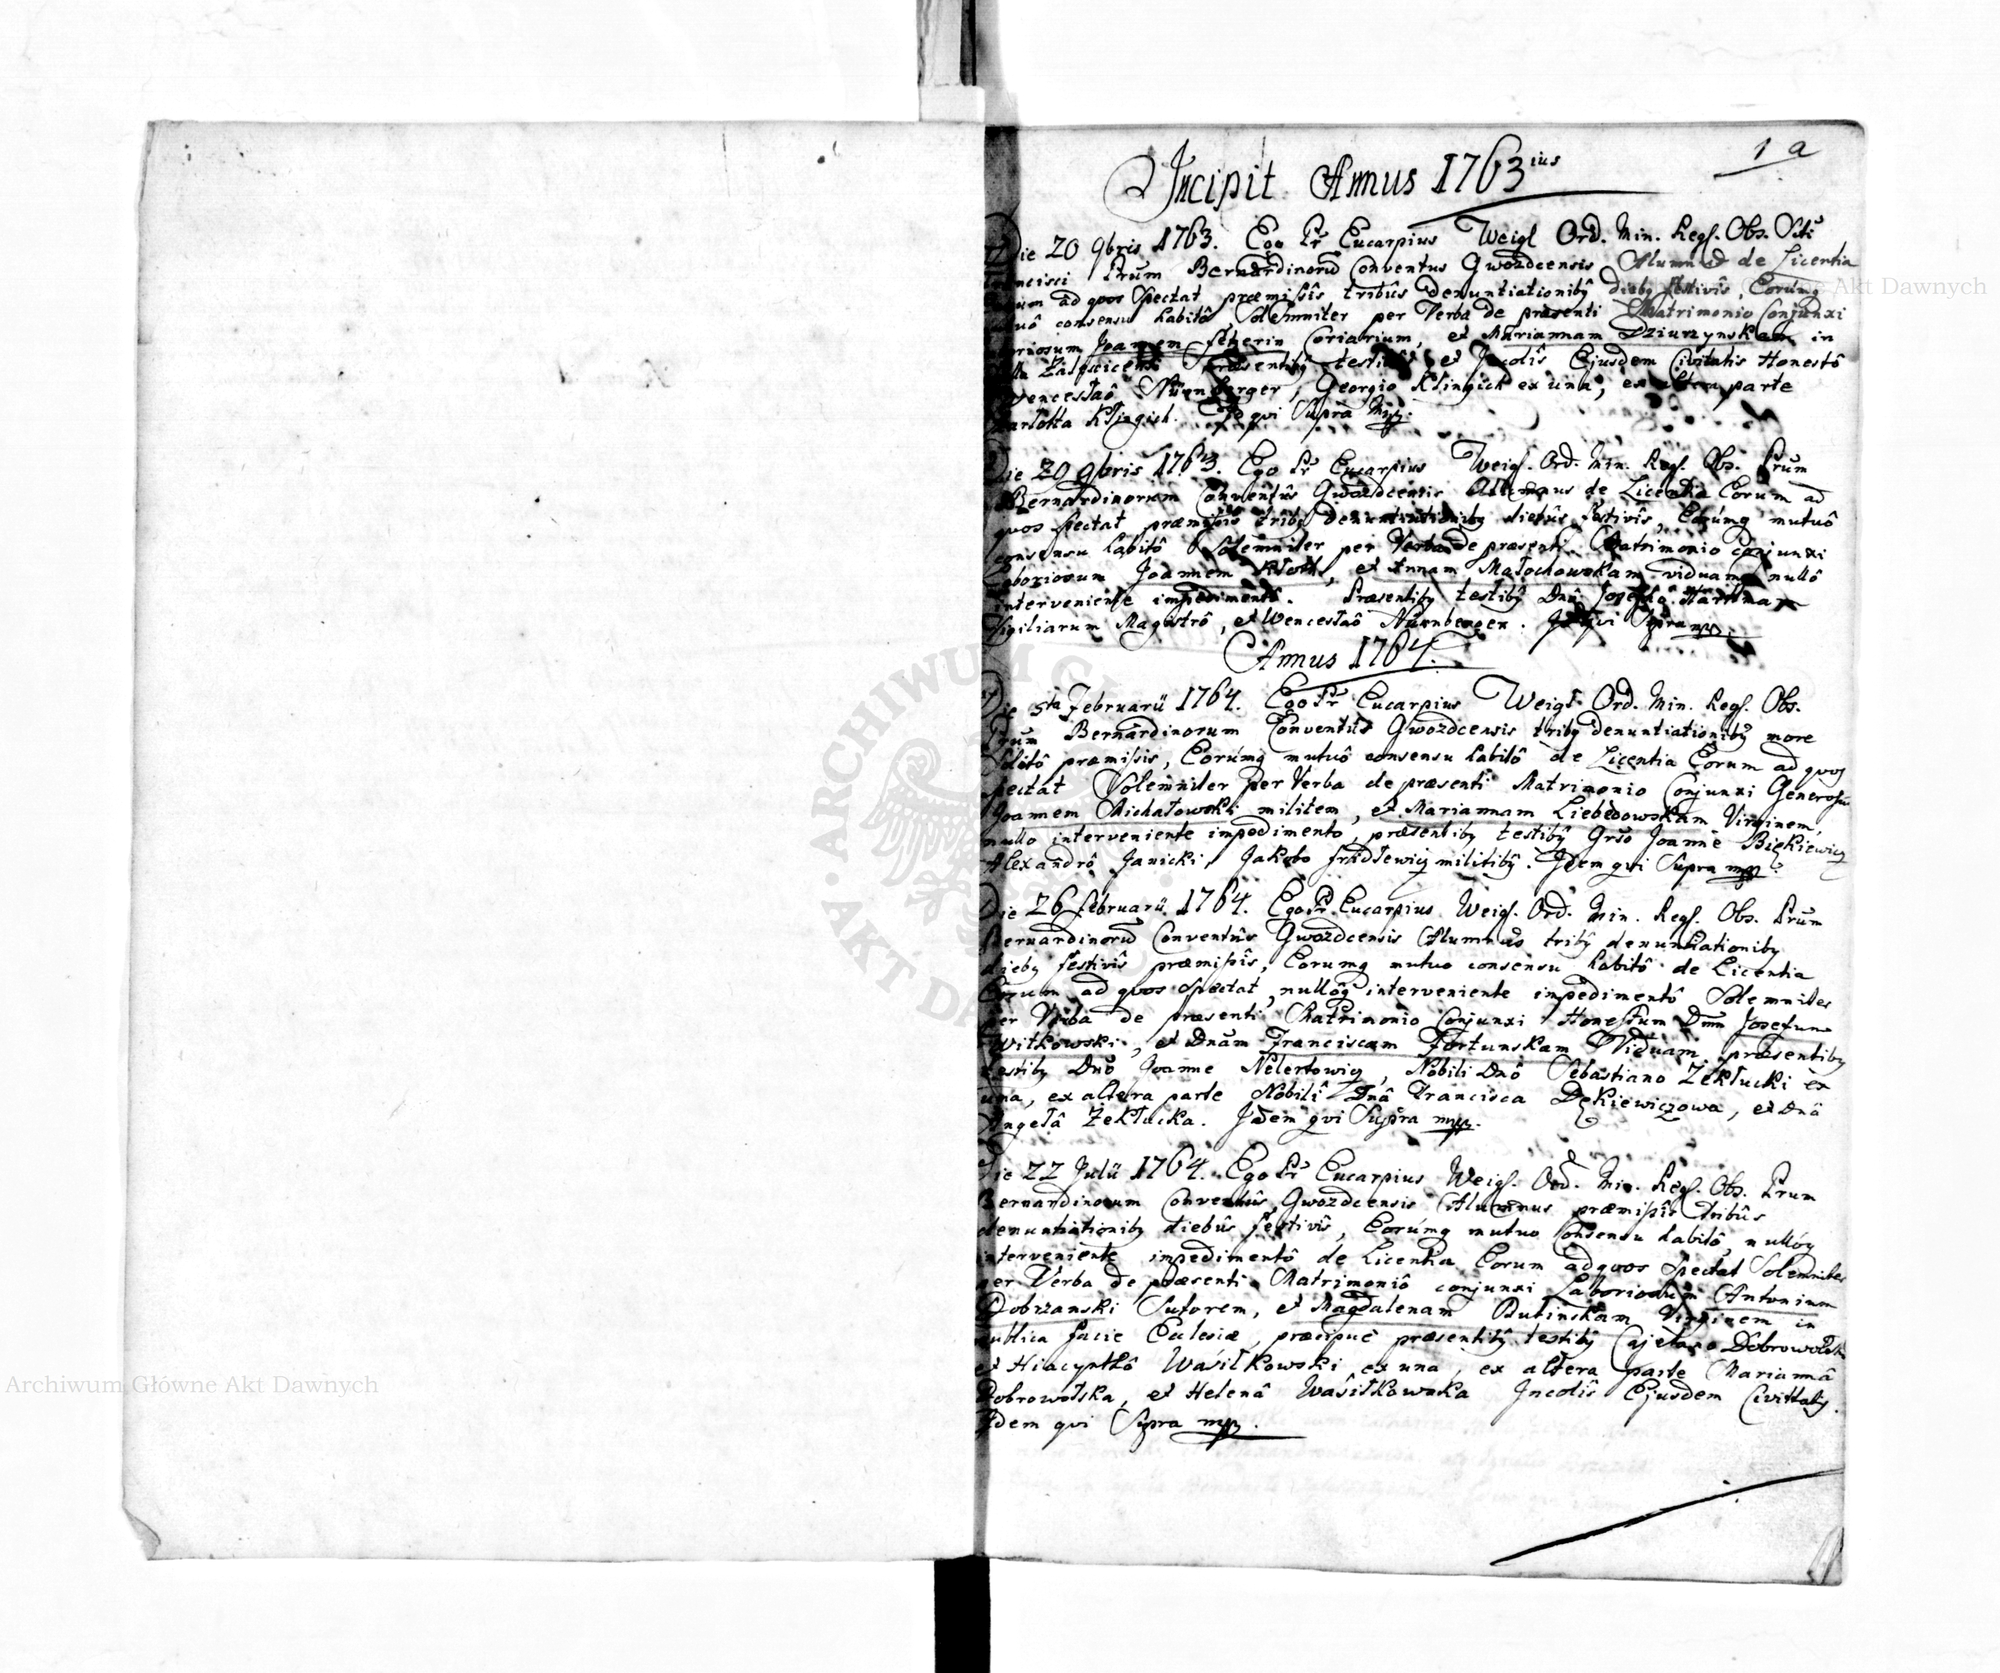 1 a
Incipit Annus 1763ius
Die 20 9bris 1763. Ego Fr Eucarpius Weigl Ord. Min. Regl. Obs. Sti
Francisci Prum Bernardinorū Conventus Gwozdcensis Alumnus de Licentia
Eorum ad quos Spectat præmissis tribûs denuntiationibg diebg festivîs, Eorumq
mutuô consensu habitô Solemniter per Verba de præsenti Matrimonio Conjunxi
Joannem Coriarium, et Mariannam Dziurzynskam in
præsentibg testibg et Incolîs Ejusdem Civitatis Honestô
Wenceslaô Nürnberger, Georgio Klingich ex una, ex altera parte
Idem qvi Supra mpp.
Die 20 9bris 1763. Ego Fr Eucarpius Weigl. Ord. Min. Regl. Obs. Prum
Bernardinorum Conventûs Gwozdcensis Alumnus de Licentia Eorum ad
quos spectat præmissis tribg denuntiationibg diebûs festivîs, Eorúmq mutuô
consensu habitô Solemniter per Verba de præsenti Matrimonio Conjunxi
Laboriosum Joannem et Annam Małochowskam viduam, nullô
interveniente impedimentô. Præsentibg testibg Dnô Josephô Hartman
Vigiliarum Magistrô, et Wenceslaô Nürnberger. Idem qvi Supra mpp.
Annus 1764.
Die 5ta Februarii 1764. Ego Fr Eucarpius Weigl Ord. Min. Regl. Obs.
Prum Bernardinorum Conventûs Gwozdcensis tribg denuntiationibg more
Solitô præmissis, Eorúmq mutuô consensu habitô de Licentia Eorum ad quos
spectat Solemniter per Verba de præsenti Matrimonio Conjunxi Generosum
Joannem Michałowski militem, et Mariannam Liebedowskam Virginem,
nullo interveniente impedimento, præsentibg testibg Gnso Joanne
Alexandrô Janicki, Jakobo militibg. Idem qvi Supra mpp.
Die 26 februarii 1764. Ego Fr. Eucarpius Weigl. Ord. Min. Regl. Obs. Prum
Bernardinorū Conventûs Gwozdcensis Alumnus tribg denuntiationibg
diebg festivîs præmissîs, Eorumq mutuo consensu habitô de Licentia
Eorum ad quos Spectat, nullôq interveniente impedimentô Solemniter
per Verba de præsenti Matrimonio Conjunxi Honestum Dnum Josefum
Witkowski, et Dnam Franciscam Fortunskam Viduam præsentibg
testibg Dnô Joanne Nelertowicz, Nobili Dnô Sebastiano Zekłucki ex
una, ex altera parte Nobili Dnâ Francisca Dękiewiczowa, et Dnâ
Angelâ Zekłucka. Idem qvi Supra mpp.
Die 22 Julii 1764. Ego Fr Eucarpius Weigl. Ord. Min. Regl. Obs. Prum
Bernardinorum Conventûs Gwozdcensis Alumnus præmissîs tribûs
denuntiationibg diebûs festivîs, Eorúmq mutuo Consensu habitô, nullóq
interveniente impedimentô de Licentia Eorum ad quos spectat Solemniter
per Verba de præsenti Matrimoniô conjunxi Laboriosum Antonium
Dobrzanski Sutorem, et Magdalenam Butinskam Virginem in
publica facie Eclesiæ, præcipuè præsentibg testibg Cajetano Dobrowolski
et Hiacynthô Wasiłkowski ex una, ex altera parte Mariannâ
Dobrowolska, et Helenâ Wasiłkowska Incolîs Ejusdem Civittatis.
Idem qvi Supra mpp.
Archiwum Główne Akt Dawnych